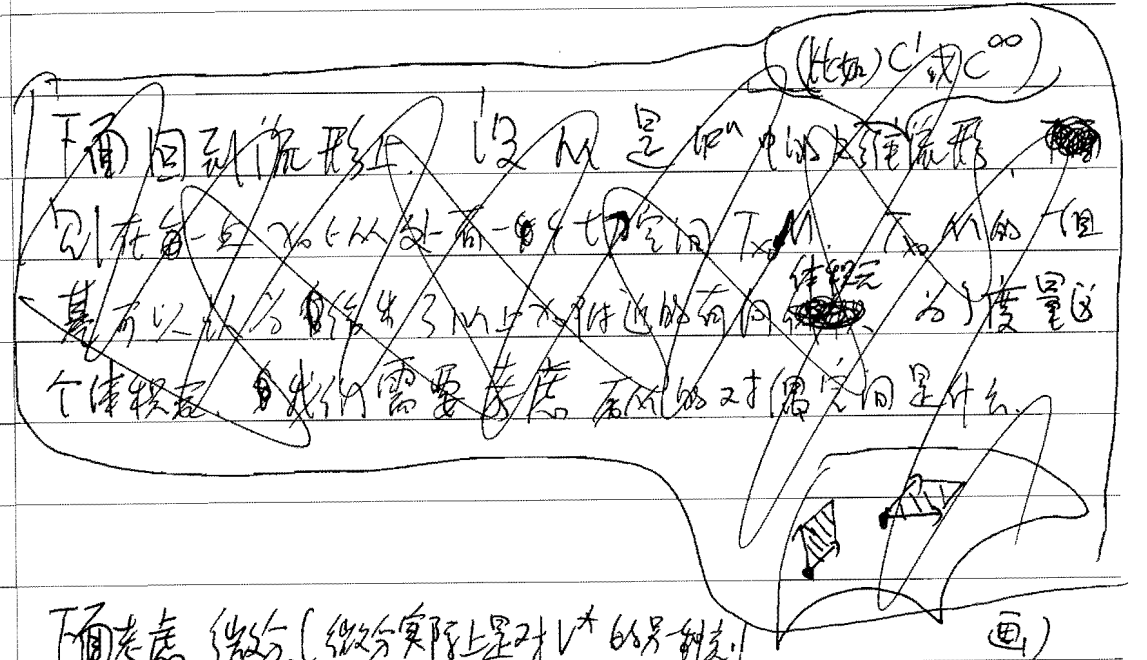 (比如) C¹ 或 C^∞
下面回到流形上. 设 M 是 ℝⁿ 中的 维流形.
则在每一点 x₀∈M 处有一个切空间 Tx₀M. Tx₀M 的一组
基可以认为给出了 M 上 x₀ 附近的有向体积元. 为了度量这
个体积元, 我们需要考虑 的对偶空间是什么.
下面考虑 微分.(微分实际上是对 V* 的另一种刻画)